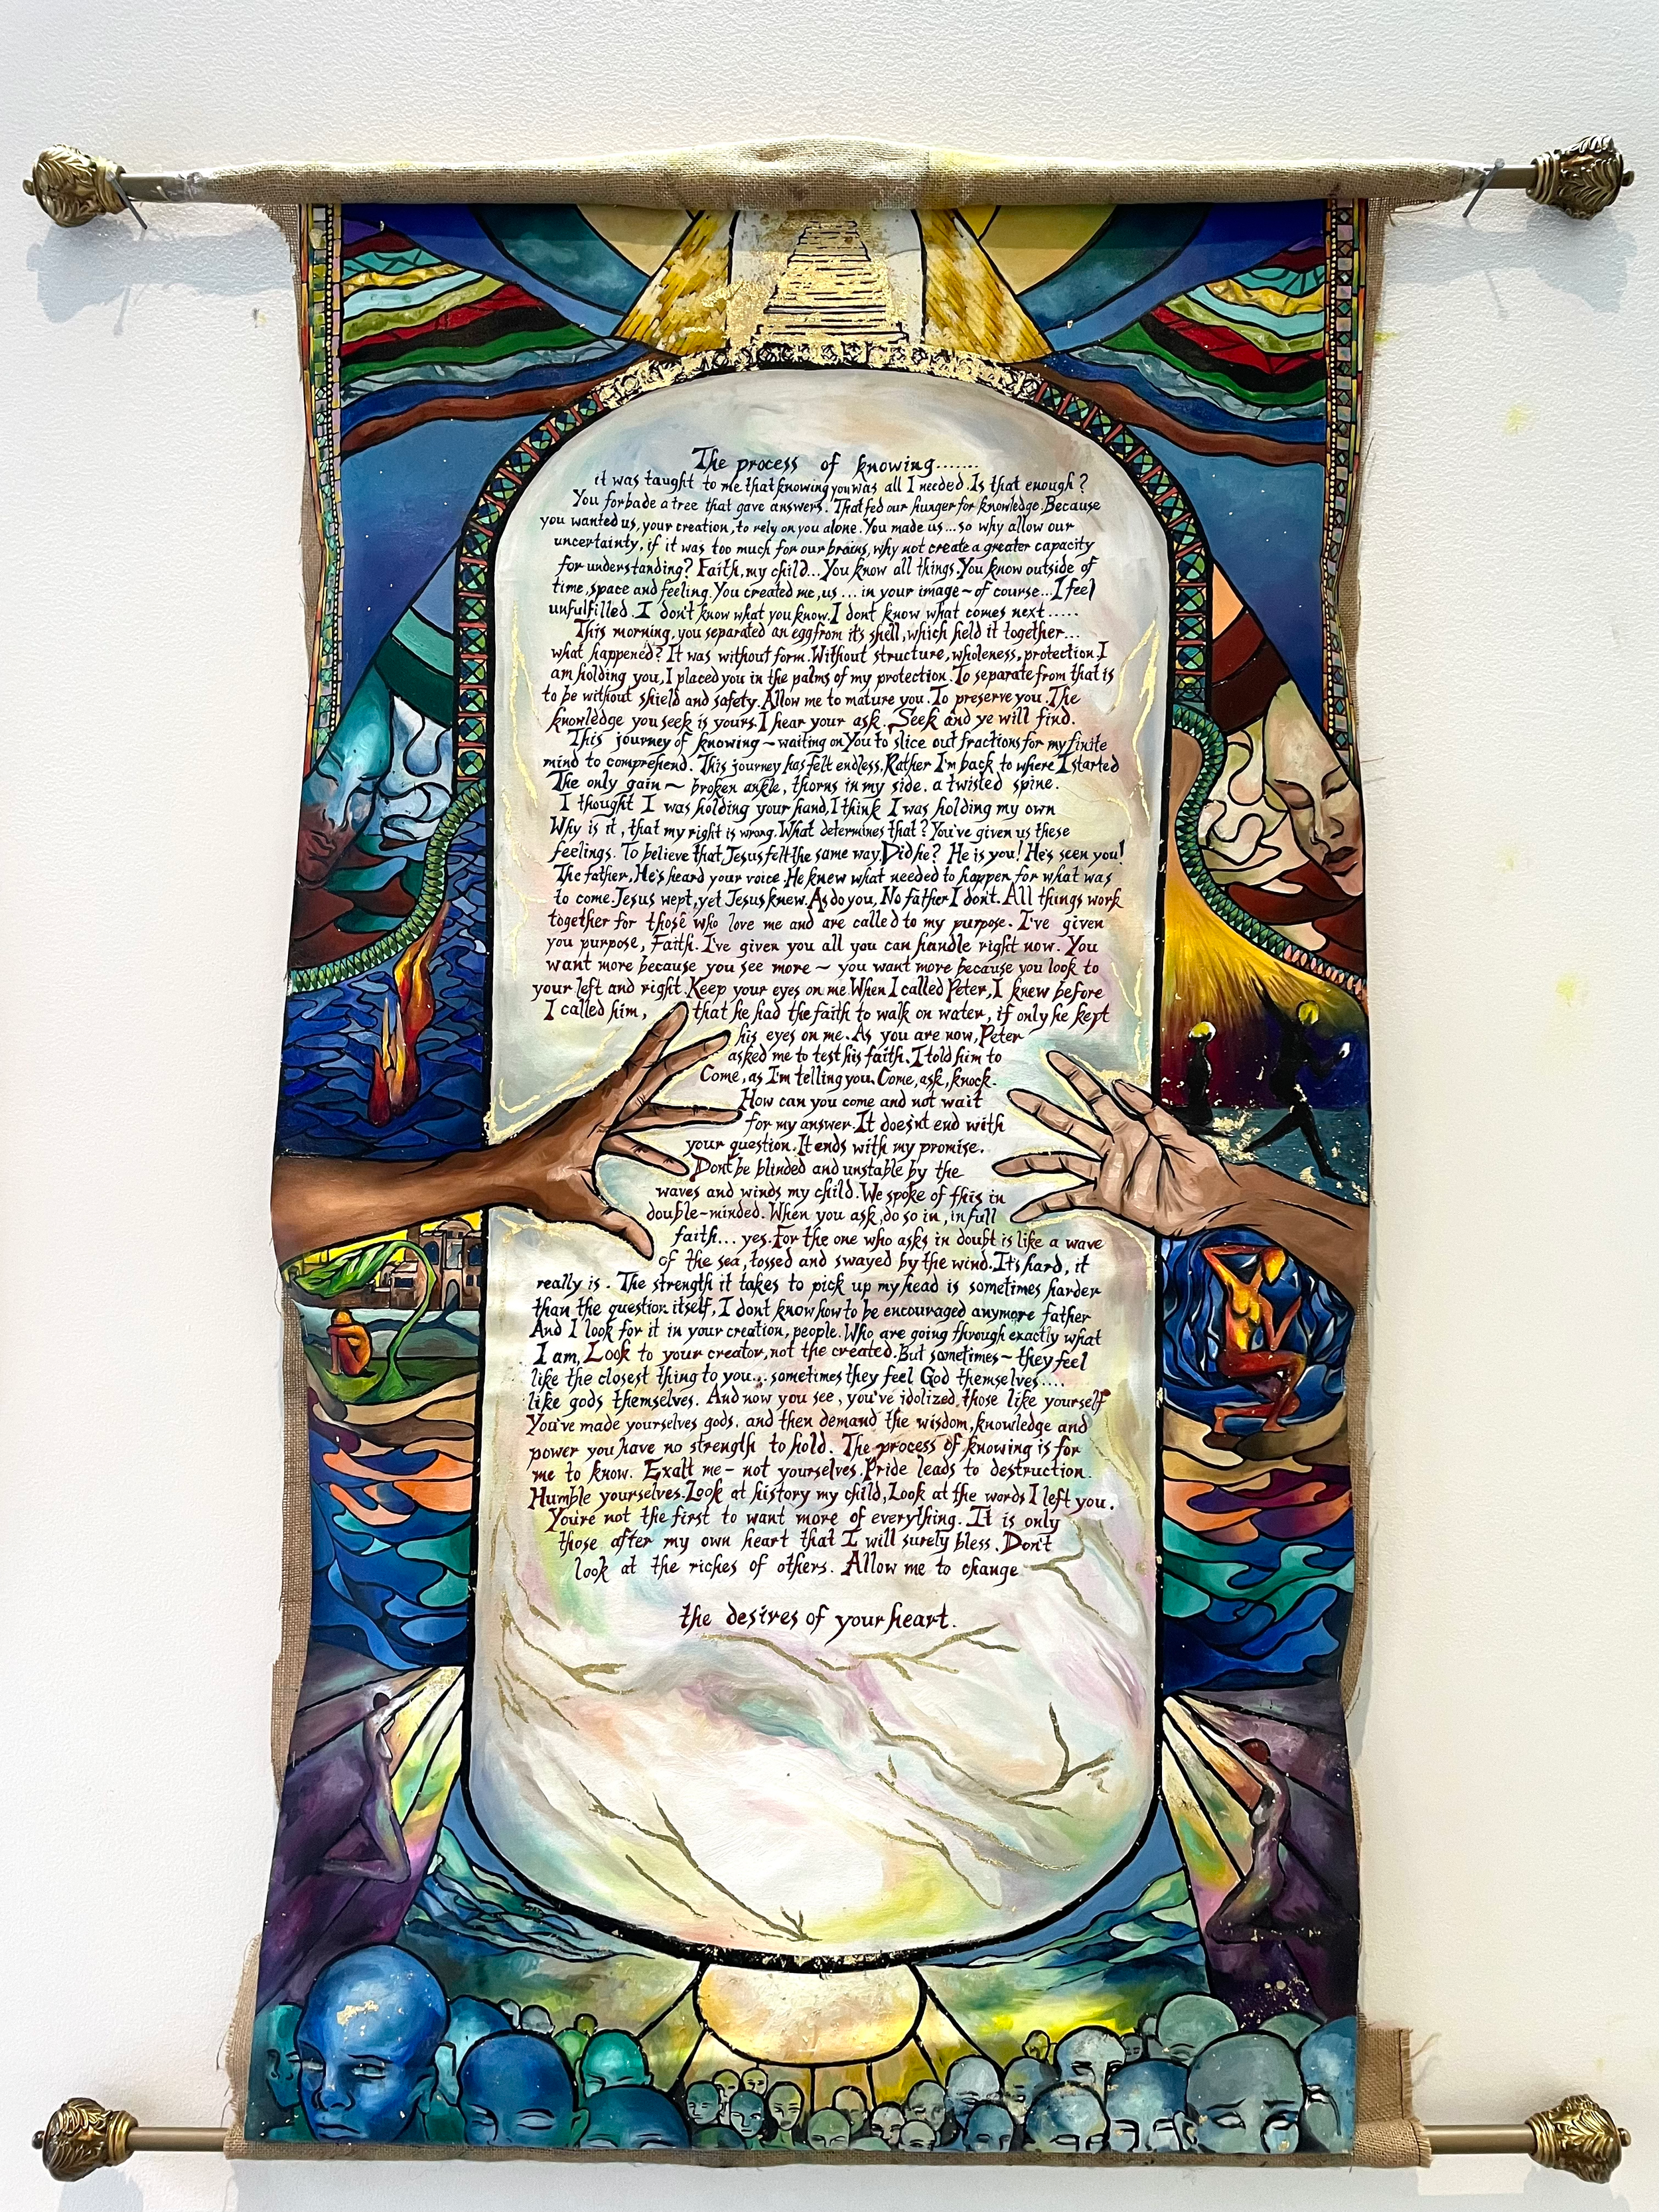 The process of knowing.......
it was taught to me that knowing you was all I needed. Is that enough?
You forbade a tree that gave answers. That fed our hunger for knowledge. Because
you wanted us, your creation, to rely on you alone. You made us... so why allow our
uncertainty, if it was too much for our brains, why not create a greater capacity
for understanding? Faith, my child... You know all things. You know outside of
time, space and feeling. You created me, us ... in your image ~ of course... I feel
unfulfilled. I don't know what you know. I dont know what comes next .....
This morning, you separated an egg from it's shell, which held it together...
what happened? It was without form. Without structure, wholeness, protection. I
am holding you, I placed you in the palms of my protection. To separate from that is
to be without shield and safety. Allow me to mature you. To preserve you. The
knowledge you seek is yours. I hear your ask. Seek and ye will find.
This journey of knowing ~ waiting on You to slice out fractions for my finite
mind to comprehend. This journey has felt endless, Rather I'm back to where I started
The only gain ~ broken ankle, thorns in my side. a twisted spine.
I thought I was holding your hand, I think I was holding my own
Why is it, that my right is wrong. What determines that? You've given us these
feelings. To believe that Jesus felt the same way. Did he? He is you! He's seen you!
The father, He's heard your voice. He knew what needed to happen for what was
to come. Jesus wept, yet Jesus knew. As do you, No father I don't. All things work
together for those who love me and are called to my purpose. I've given
you purpose, Faith. I've given you all you can handle right now. You
want more because you see more ~ you want more because you look to
your left and right. Keep your eyes on me. When I called Peter, I knew before
I called him, that he had the faith to walk on water, if only he kept
his eyes on me. As you are now, Peter
asked me to test his faith. I told him to
Come, as I'm telling you. Come, ask, knock.
How can you come and not wait
for my answer. It doesn't end with
your question. It ends with my promise.
Dont be blinded and unstable by the
waves and winds my child. We spoke of this in
double-minded. When you ask, do so in, in full
faith... yes. For the one who asks in doubt is like a wave
of the sea, tossed and swayed by the wind. It's hard, it
really is. The strength it takes to pick up my head is sometimes harder
than the question itself, I dont know how to be encouraged anymore father
And I look for it in your creation, people. Who are going through exactly what
I am, Look to your creator, not the created. But sometimes ~ they feel
like the closest thing to you... sometimes they feel God themselves....
like gods themselves. And now you see, you've idolized those like yourself
You've made yourselves gods. and then demand the wisdom, knowledge and
power you have no strength to hold. The process of knowing is for
me to know. Exalt me - not yourselves. Pride leads to destruction.
Humble yourselves. Look at history my child, Look at the words I left you.
You're not the first to want more of everything. It is only
those after my own heart that I will surely bless. Don't
look at the riches of others. Allow me to change
the desires of your heart.